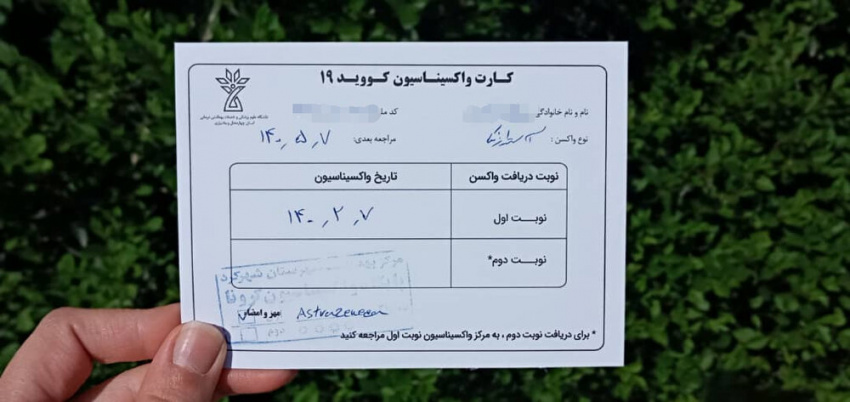 کارت واکسیناسیون کووید ۱۹
دانشگاه علوم پزشکی و خدمات بهداشتی درمانی
استان چهارمحال و بختیاری
نام و نام خانوادگی
کد ملی
نوع واکسن : آسترازنکا
مراجعه بعدی: ۱۴۰۰٫۵٫۷
نوبت دریافت واکسن تاریخ واکسیناسیون
نوبـــت اول ۱۴۰۰٫۲٫۷
نوبـــت دوم*
مرکز شهرستان شهرکرد
کرونا
مهر و امضای AstraZeneca
* برای دریافت نوبت دوم ، به مرکز واکسیناسیون نوبت اول مراجعه کنید